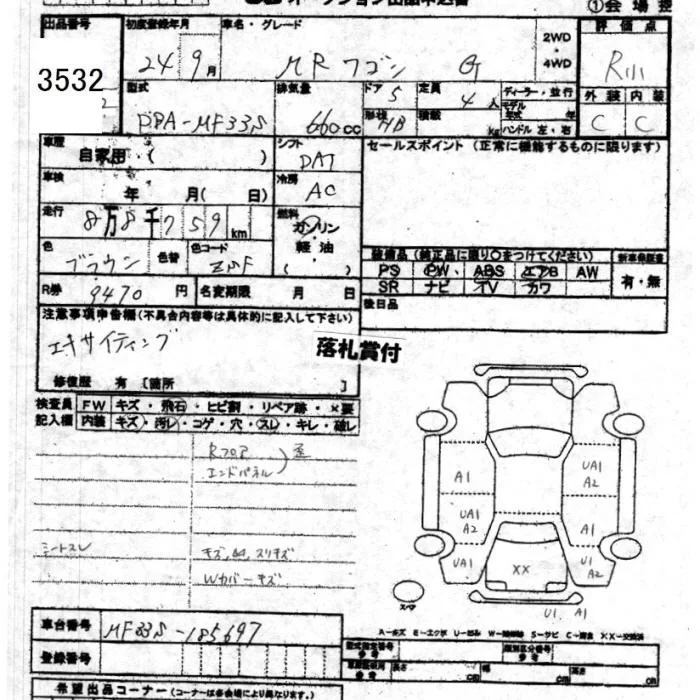 ①会場控
出品番号 初度登録年月 車名・グレード 2WD・4WD 評価点
3532 24 9月 MRワゴン G R小
型式 排気量 ドア 定員 ディーラー・並行 外装 内装
DBA-MF33S 660cc 5 4人 モデル年式 年 C C
形状 積載 HB kg ハンドル 左・右
車歴 シフト セールスポイント(正常に機能するものに限ります)
自家用・( ) DAT
車検 冷房
年 月( 日) AC
走行 燃料
8万8千759km ガソリン・軽油
色 色替 色コード ( )
ブラウン ZSF
装備品(純正品に限り○をつけてください) 新車保証書
PS PW ABS エアB AW 有・無
SR ナビ TV カワ
R券 9470円 名変期限 月 日 後日品
注意事項申告欄(不具合内容等は具体的に記入して下さい)
エキサイティング
落札賞付
修復歴 有 [箇所 ]
検査員 FW キズ・飛石・ヒビ割・リペア跡・×要
記入欄 内装 キズ・汚レ・コゲ・穴・スレ・キレ・破レ
Rフロア
エンドパネル
シートスレ キズ,凹,スリキズ
Wカバーキズ
A1 UA1 A2
UA1 A2 A1
UA1 XX U1 A2
スペア U1 A1
車台番号 MF33S-185697
A-キズ E-エクボ U-凹ミ S-サビ XX-交換済
登録番号 型式指定番号 参考 類別区分番号 参考
長さ cm 幅 cm 高さ cm
希望出品コーナー(コーナーは各会場により異なります。)